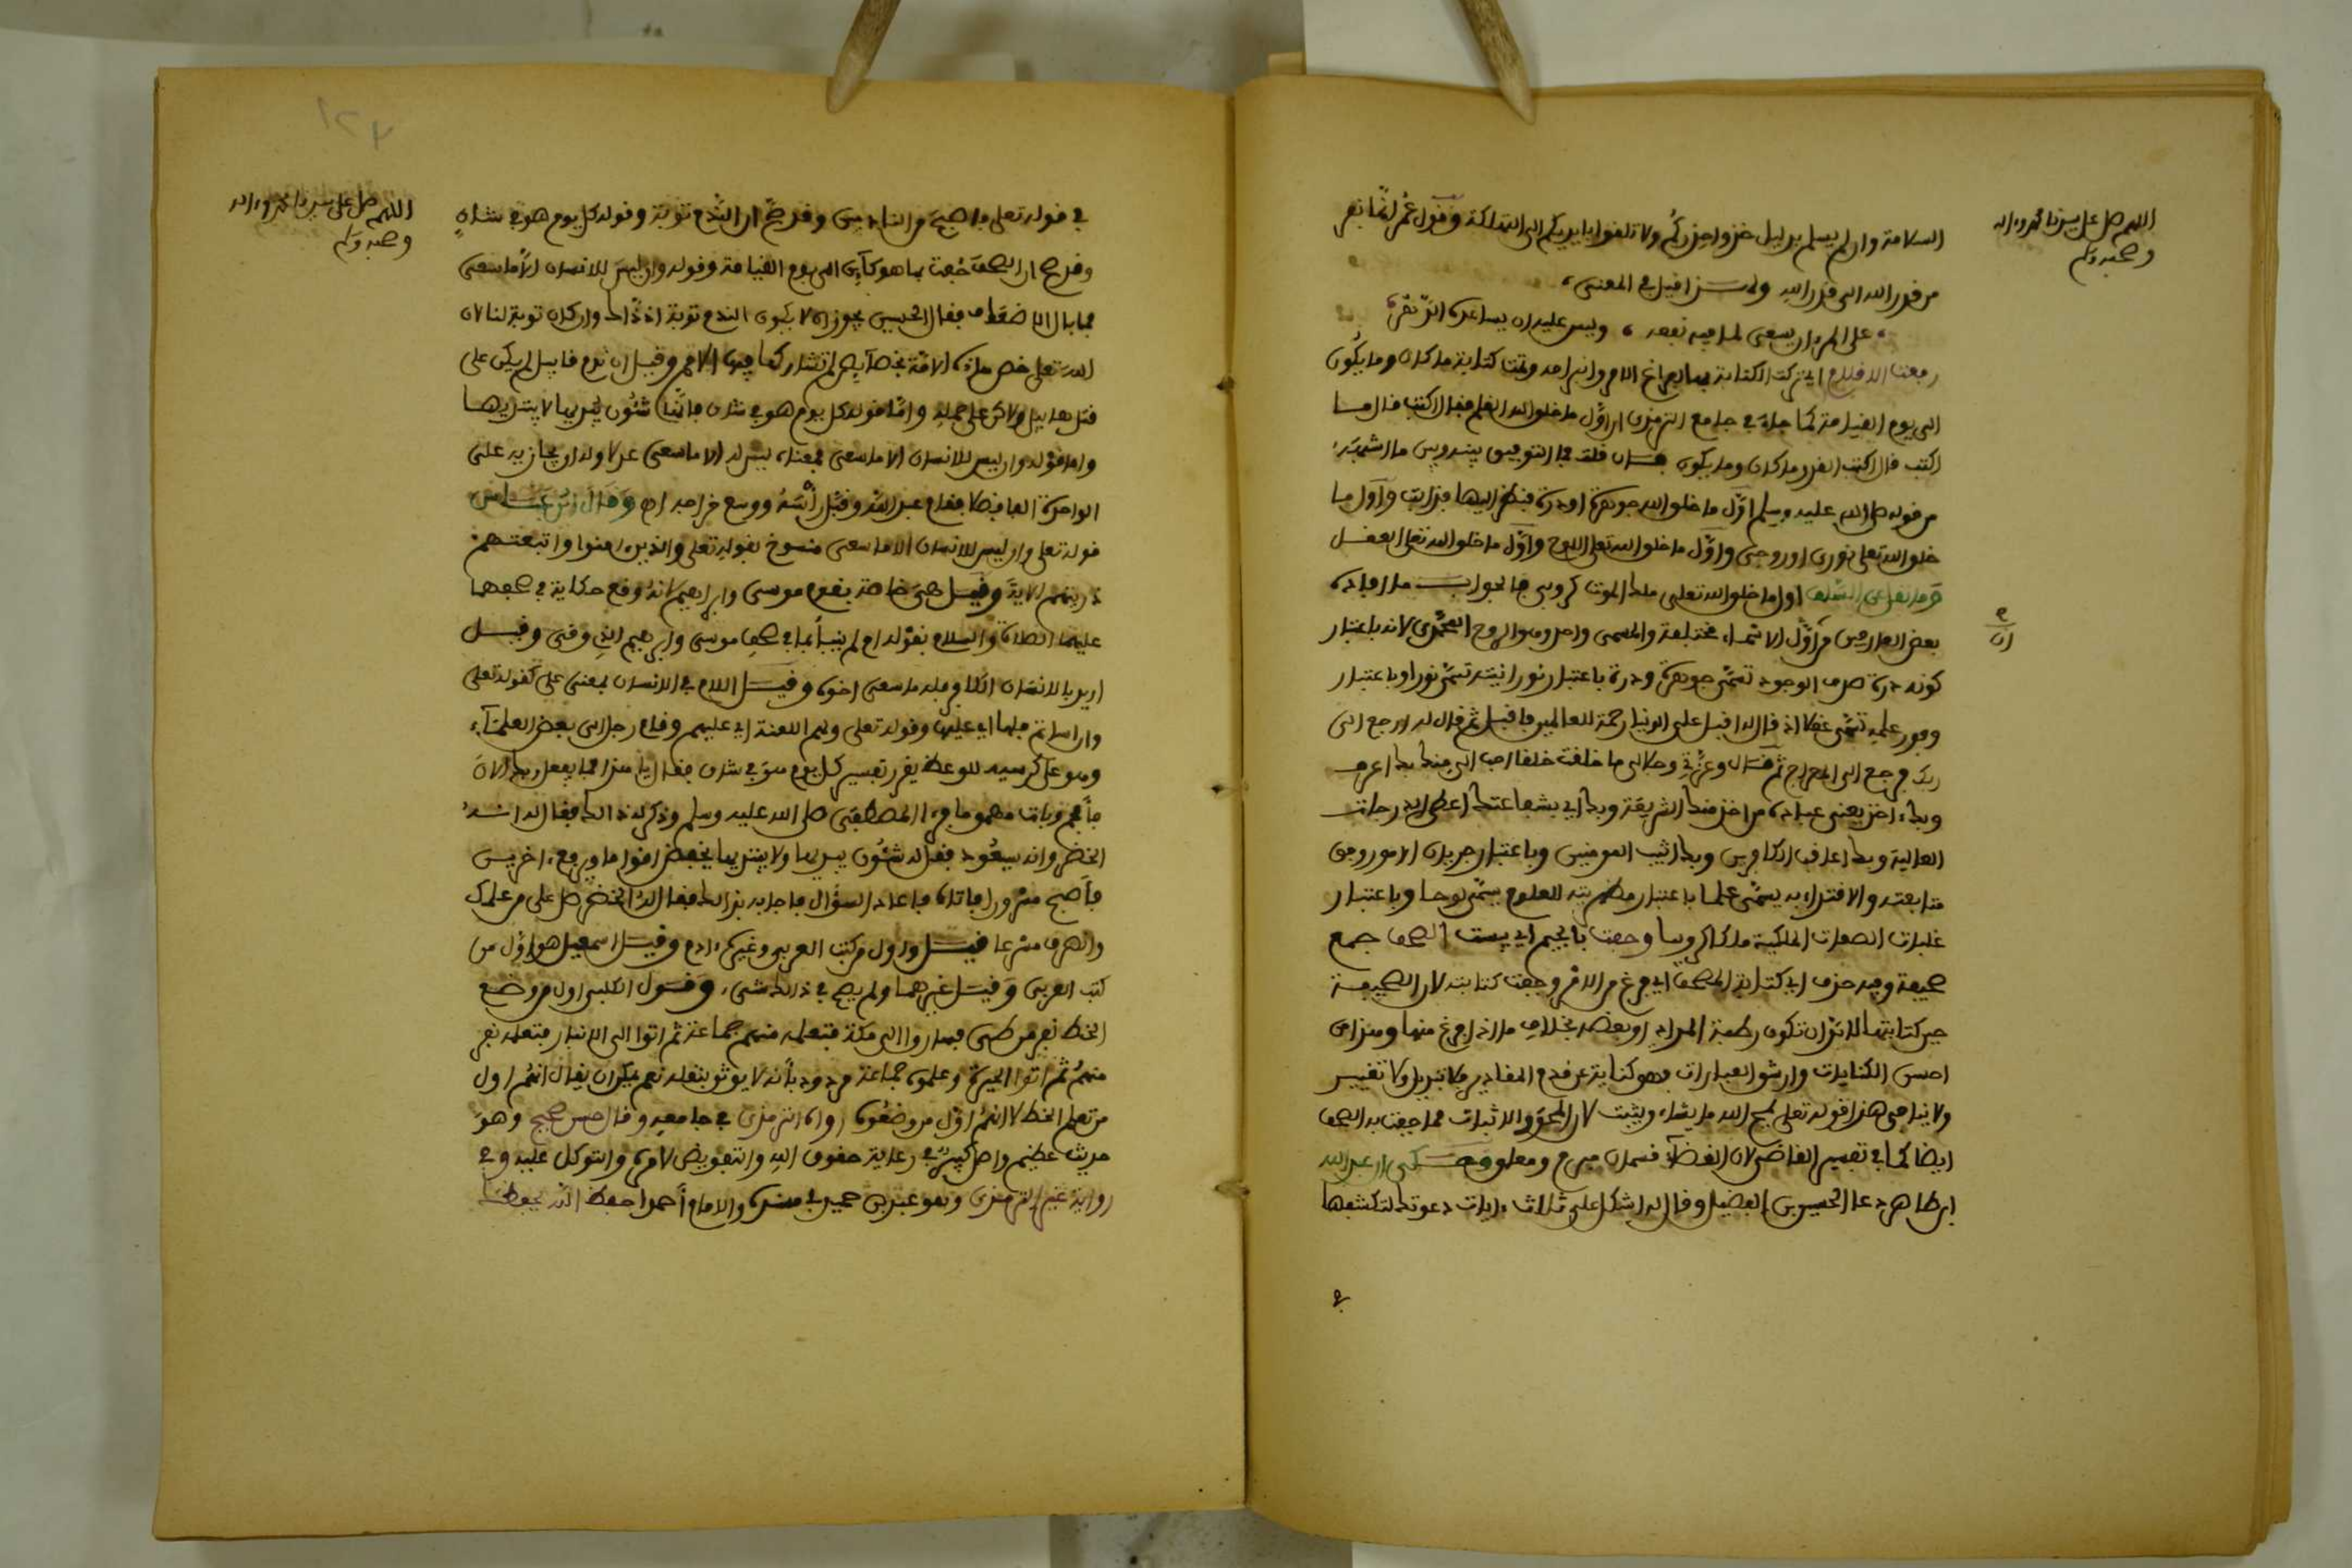 اللهم صل على سيدنا محمد وءاله
وصحبه وسلم
السلامة وان لم يسلم بدليل خذوا حذركم ولا تلقوا بايديكم الى التهلكة وقول عمر نفر
من قدر الله الى قدر الله ولهذا قيل في المعنى
على المرء ان يسعى لما فيه نفعه وليس عليه ان يساعده الدهر
رفعت الاقلام اي تركت الكتابة بها لفراغ الامر وانبرامه وتمت كتابة ما كان وما يكون
الى يوم القيامة كما جاء في جامع الترمذي ان اول ما خلق الله القلم فقال اكتب قال ما
اكتب قال اكتب القدر ما كان وما يكون فان قلت فما التوفيق بينه وبين ما اشتهر
من قوله صلى الله عليه وسلم اول ما خلق الله جوهرة او درة فنظر اليها فذابت واول ما
خلق الله تعلى نوري او روحي واول ما خلق الله تعلى اللوح واول ما خلق الله تعلى العقل
وما نقل عن السلف اول ما خلق الله تعلى ملك الموت كروبي فالجواب ما افاده
بعض العارفين من ان الاسماء مختلفة والمسمى واحد وهو الروح المحمدي لانه باعتبار
كونه درة صدف الوجود تسمى جوهرة ودرة باعتبار نورانيته تسمى نورا وباعتبار
وفور علمه تسمى عقلا اذ قال له اقبل على الدنيا رحمة للعالمين فاقبل ثم قال له ارجع الى
ربك فرجع الى المعراج ثم قال وعزتي وجلالي ما خلقت خلقا احب الي منك بك اعرف
وبك ءاخذ يعني عبادة من اخذ منك الشريعة وبك اي بشفاعتك اعطي الدرجات
العالية وبك اعاقب الكافرين وبك اثيب المومنين وباعتبار جريان الامور وفق
متابعته والاقتداء به يسمى قلما باعتبار مظهريته للعلوم يسمى لوحا وباعتبار
غلبات الصفات الملكية ملكا كروبيا وجفت بالجيم اي يبست الصحف جمع
صحيفة وفيه حذف اي كتابة الصحف اي فرغ من الامر وجفت كتابته لان الصحيفة
حين كتابتها لا بد ان تكون رطبة المداد او بعضه بخلاف ما اذا فرغ منها وهذا من
احسن الكنايات وارشق العبارات فهو كناية عن قدم المقادير فلا تبديل ولا تغيير
ولا ينافي هذا قوله تعلى يمحو الله ما يشاء ويثبت لان المحو والاثبات مما جفت به الصحف
ايضا كما في تفسير القاضي لان القضاء قسمان مبرم ومعلق وحكي ان عبد الله
ابن طاهر دعا الحسين بن الفضل وقال له اشكل علي ثلاث ءايات دعوتك لتكشفها
في
اللهم صل على سيدنا محمد وءاله
وصحبه وسلم
في قوله تعلى فاصبح من النادمين وقد صح ان الندم توبة وقوله كل يوم هو في شان
وقد صح ان الصحف جفت بما هو كائن الى يوم القيامة وقوله وان ليس للانسان الا ما سعى
فما بال الاضعاف فقال الحسين يجوز ان لا يكون الندم توبة اذ ذاك وان كان توبة لنا لان
الله تعلى خص هذه الامة بخصائص لم تشاركها فيها الامم وقيل ان ندم قابيل لم يكن على
قتل هابيل ولاكن على حمله واما قوله كل يوم هو في شان فانها شئون يبديها لا يبتديها
واما قوله وان ليس للانسان الا ما سعى فمعناه ليس له الا ما سعى عدلا وله ان يجازيه على
الواحدة الفا فضلا فقام عبد الله وقبل راسه ووسع خراجه اه وقال ابن عباس
قوله تعلى وان ليس للانسان الا ما سعى منسوخ بقوله تعلى والذين ءامنوا واتبعتهم
ذريتهم الاية وقيل هي خاصة بقوم موسى وابراهيم لانه وقع حكاية في صحفهما
عليهما الصلاة والسلام بقوله ام لم ينبأ بما في صحف موسى وابراهيم الذي وفى وقيل
اريد بالانسان الكافر فله ما سعى اخوه وقيل اللام في الانسان بمعنى على كقوله تعلى
وان اساتم فلها اي عليها وقوله تعلى ولهم اللعنة اي عليهم وقام رجل الى بعض العلماء
وهو على كرسيه للوعظ يقرر تفسير كل يوم هو في شان فقال يا هذا فما يفعل ربك الان
فافحم وبات مهموما فرءا المصطفى صلى الله عليه وسلم وذكر له ذالك فقال له انه
الخضر وانه سيعود فقل له شئون يبديها ولا يبتديها يخفض اقواما ويرفع ءاخرين
فاصبح مسرورا فاتاه فاعاد السؤال فاجابه بذالك فقال له الخضر صل على من علمك
وانصرف مسرعا قيل واول من كتب العربي وغيره ءادم وقيل اسمعيل هو اول من
كتب العربي وقيل غيرهما ولم يصح في ذالك شيء وقول الكلبي اول من وضع
الخط نفر من طيء فساروا الى مكة فتعلمه منهم جماعة ثم اتوا الى الانبار فتعلمه نفر
منهم ثم اتوا الحيرة وعلموه جماعة مردود بانه لا يوثق بنقله نعم يمكن ان يقال انهم اول
من تعلم الخط لا انهم اول من وضعوه رواه الترمذي في جامعه وقال حسن صحيح وهو
حديث عظيم واصل كبير في رعاية حقوق الله والتفويض لامره والتوكل عليه وفي
رواية غير الترمذي وهو عبد بن حميد في مسنده والامام احمد احفظ الله يحفظك